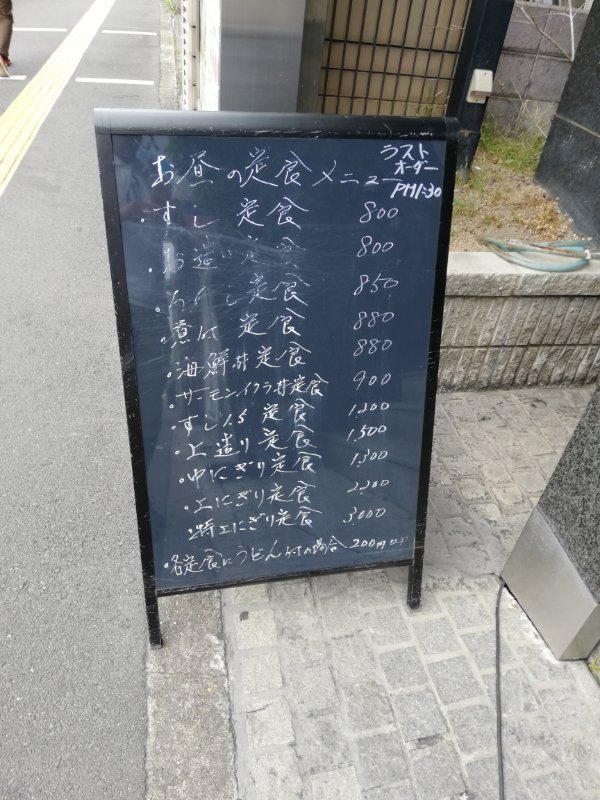 お昼の定食メニュー
ラスト
オーダー
PM1:30
・すし 定食 800
・お造り定食 800
・ちらし定食 850
・煮付 定食 880
・海鮮丼定食 880
・サーモンイクラ丼定食 900
・すし1.5 定食 1,200
・上造り定食 1,500
・中にぎり定食 1,300
・上にぎり定食 2,200
・特上にぎり定食 3,000
・各定食にうどん付の場合 200円